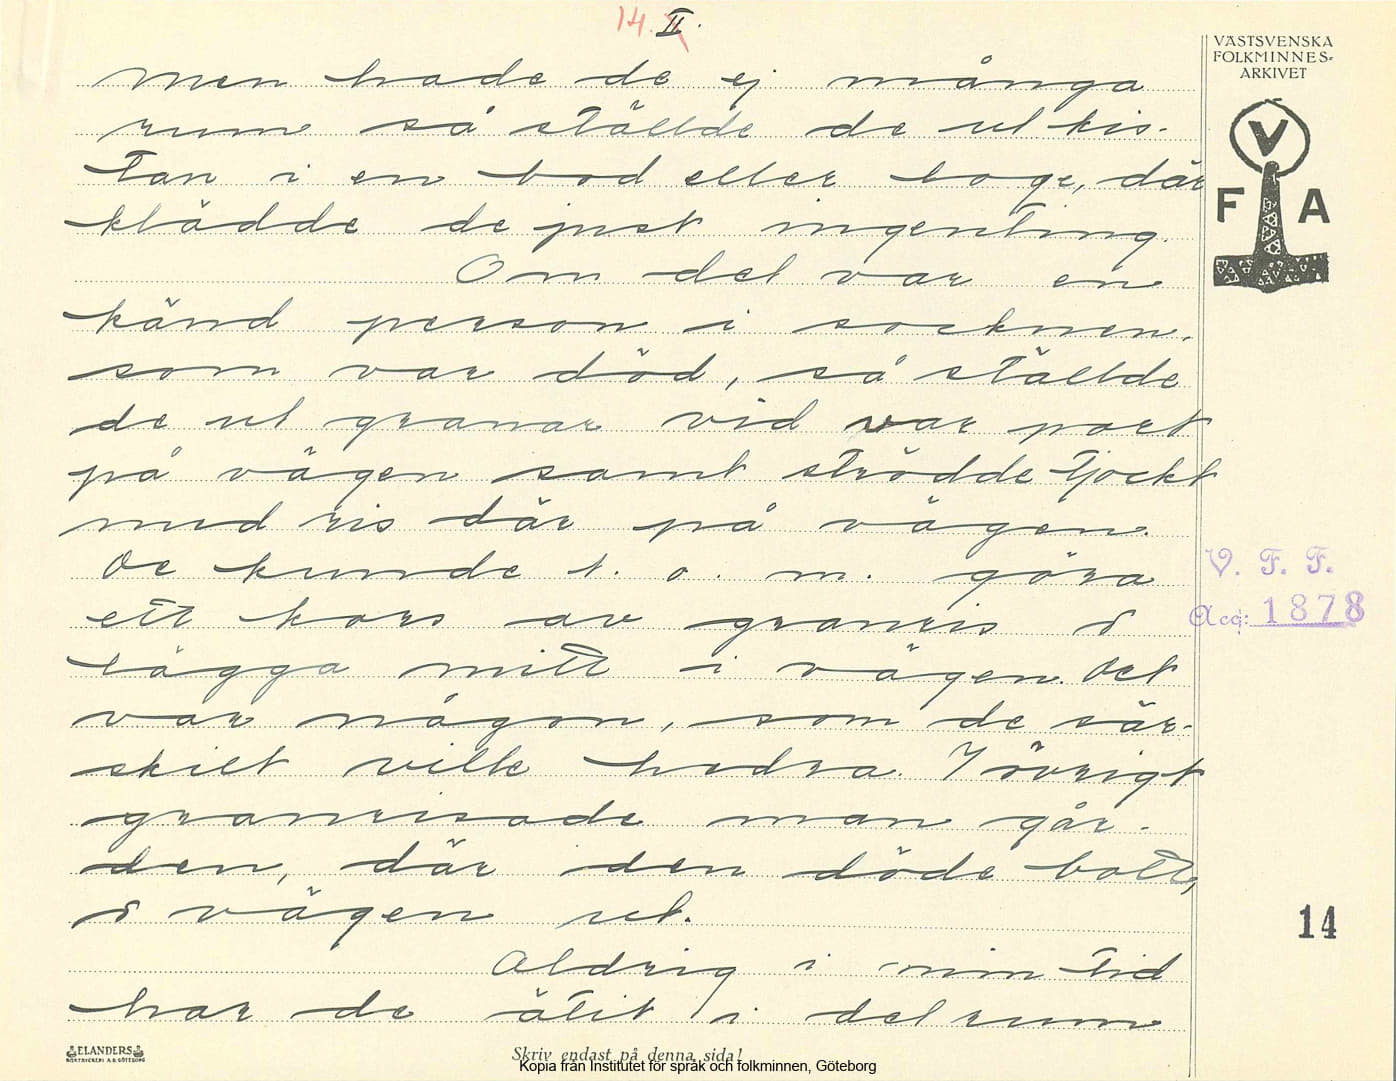 14. II.
VÄSTSVENSKA
FOLKMINNES-
ARKIVET
V
F A
men hade de ej många
rum så ställde de ut kis-
tan i en bod eller loge, där
klädde de just ingenting.
Om det var en
känd person i socknen,
som var död, så ställde
de ut granar vid var port
på vägen samt strödde tjockt
med ris där på vägen.
De kunde t. o. m. göra
ett kors av granris o
lägga mitt i vägen. Det
var någon, som de sär-
skilt ville hedra. I övrigt
granrisade man går-
den, där den döde bott,
o vägen ut.
Aldrig i min tid
har de ätit i det rum
V. F. F.
Acc: 1878
14
ELANDERS
BOKTRYCKERI A.B. GÖTEBORG
Skriv endast på denna sida!
Kopia från Institutet för språk och folkminnen, Göteborg